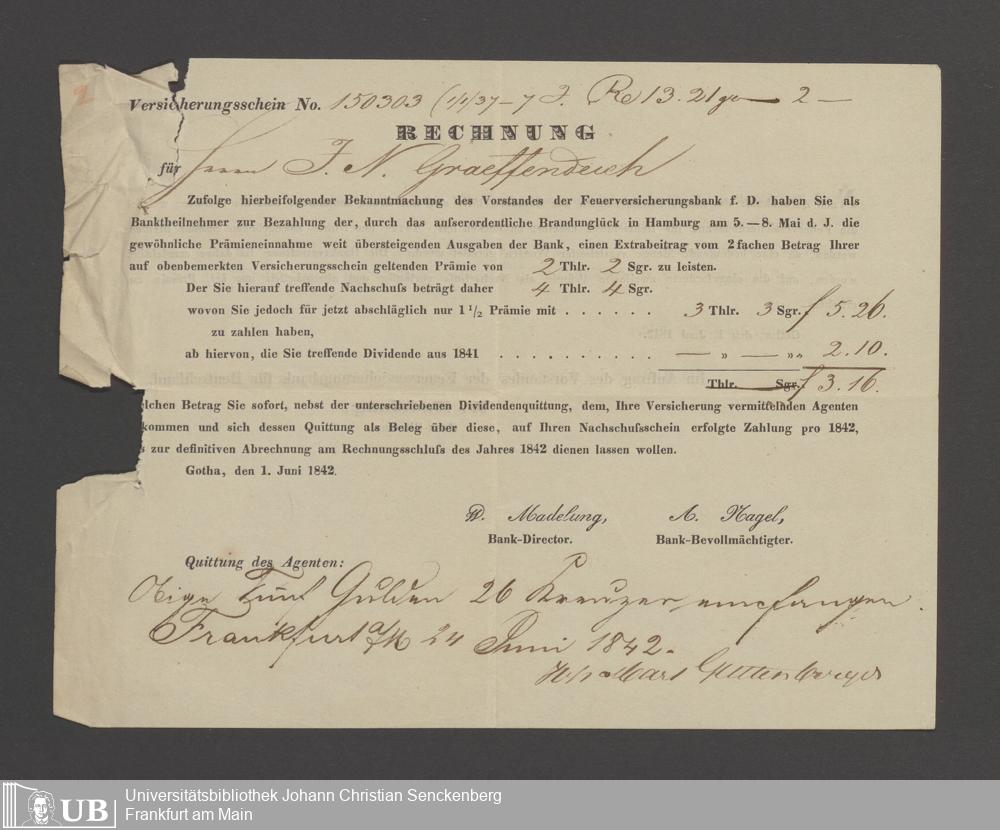 2
Versicherungsschein No. 150303 (1/1/37 - 7 J. 13.21 2 —
RECHNUNG
für Herrn J. N. Graeffendeich
Zufolge hierbeifolgender Bekanntmachung des Vorstandes der Feuerversicherungsbank f. D. haben Sie als
Banktheilnehmer zur Bezahlung der, durch das aufserordentliche Brandunglück in Hamburg am 5.—8. Mai d. J. die
gewöhnliche Prämieneinnahme weit übersteigenden Ausgaben der Bank, einen Extrabeitrag vom 2fachen Betrag Ihrer
auf obenbemerkten Versicherungsschein geltenden Prämie von 2 Thlr. 2 Sgr. zu leisten.
Der Sie hierauf treffende Nachschufs beträgt daher 4 Thlr. 4 Sgr.
wovon Sie jedoch für jetzt abschläglich nur 1 1/2 Prämie mit . . . . . . 3 Thlr. 3 Sgr. f 5.26.
zu zahlen haben,
ab hiervon, die Sie treffende Dividende aus 1841 . . . . . . . . . . — „ — „„ 2.10.
Thlr. Sgr. f 3.16.
elchen Betrag Sie sofort, nebst der unterschriebenen Dividendenquittung, dem, Ihre Versicherung vermittelnden Agenten
kommen und sich dessen Quittung als Beleg über diese, auf Ihren Nachschufsschein erfolgte Zahlung pro 1842,
s zur definitiven Abrechnung am Rechnungsschlufs des Jahres 1842 dienen lassen wollen.
Gotha, den 1. Juni 1842.
D. Madelung, A. Nagel,
Bank-Director. Bank-Bevollmächtigter.
Quittung des Agenten:
Obige Fünf Gulden 26 Kreuzer empfangen.
Frankfurt a/M 24 Juni 1842.
Guttenberger
UB
Universitätsbibliothek Johann Christian Senckenberg
Frankfurt am Main